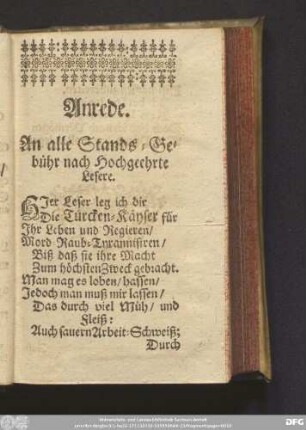 Anrede.
An alle Stands-Ge-
bühr nach Hochgeehrte
Lesere.
HJer Leser leg ich dir
Die Türcken-Käyser für
Ihr Leben und Regieren/
Mord-Raub-Tyrannisiren/
Biß daß sie ihre Macht
Zum höchsten Zweck gebracht.
Man mag es loben/hassen/
Jedoch man muß mir lassen/
Das durch viel Müh/ und
Fleiß:
Auch sauern Arbeit-Schweiß;
Durch
DFG